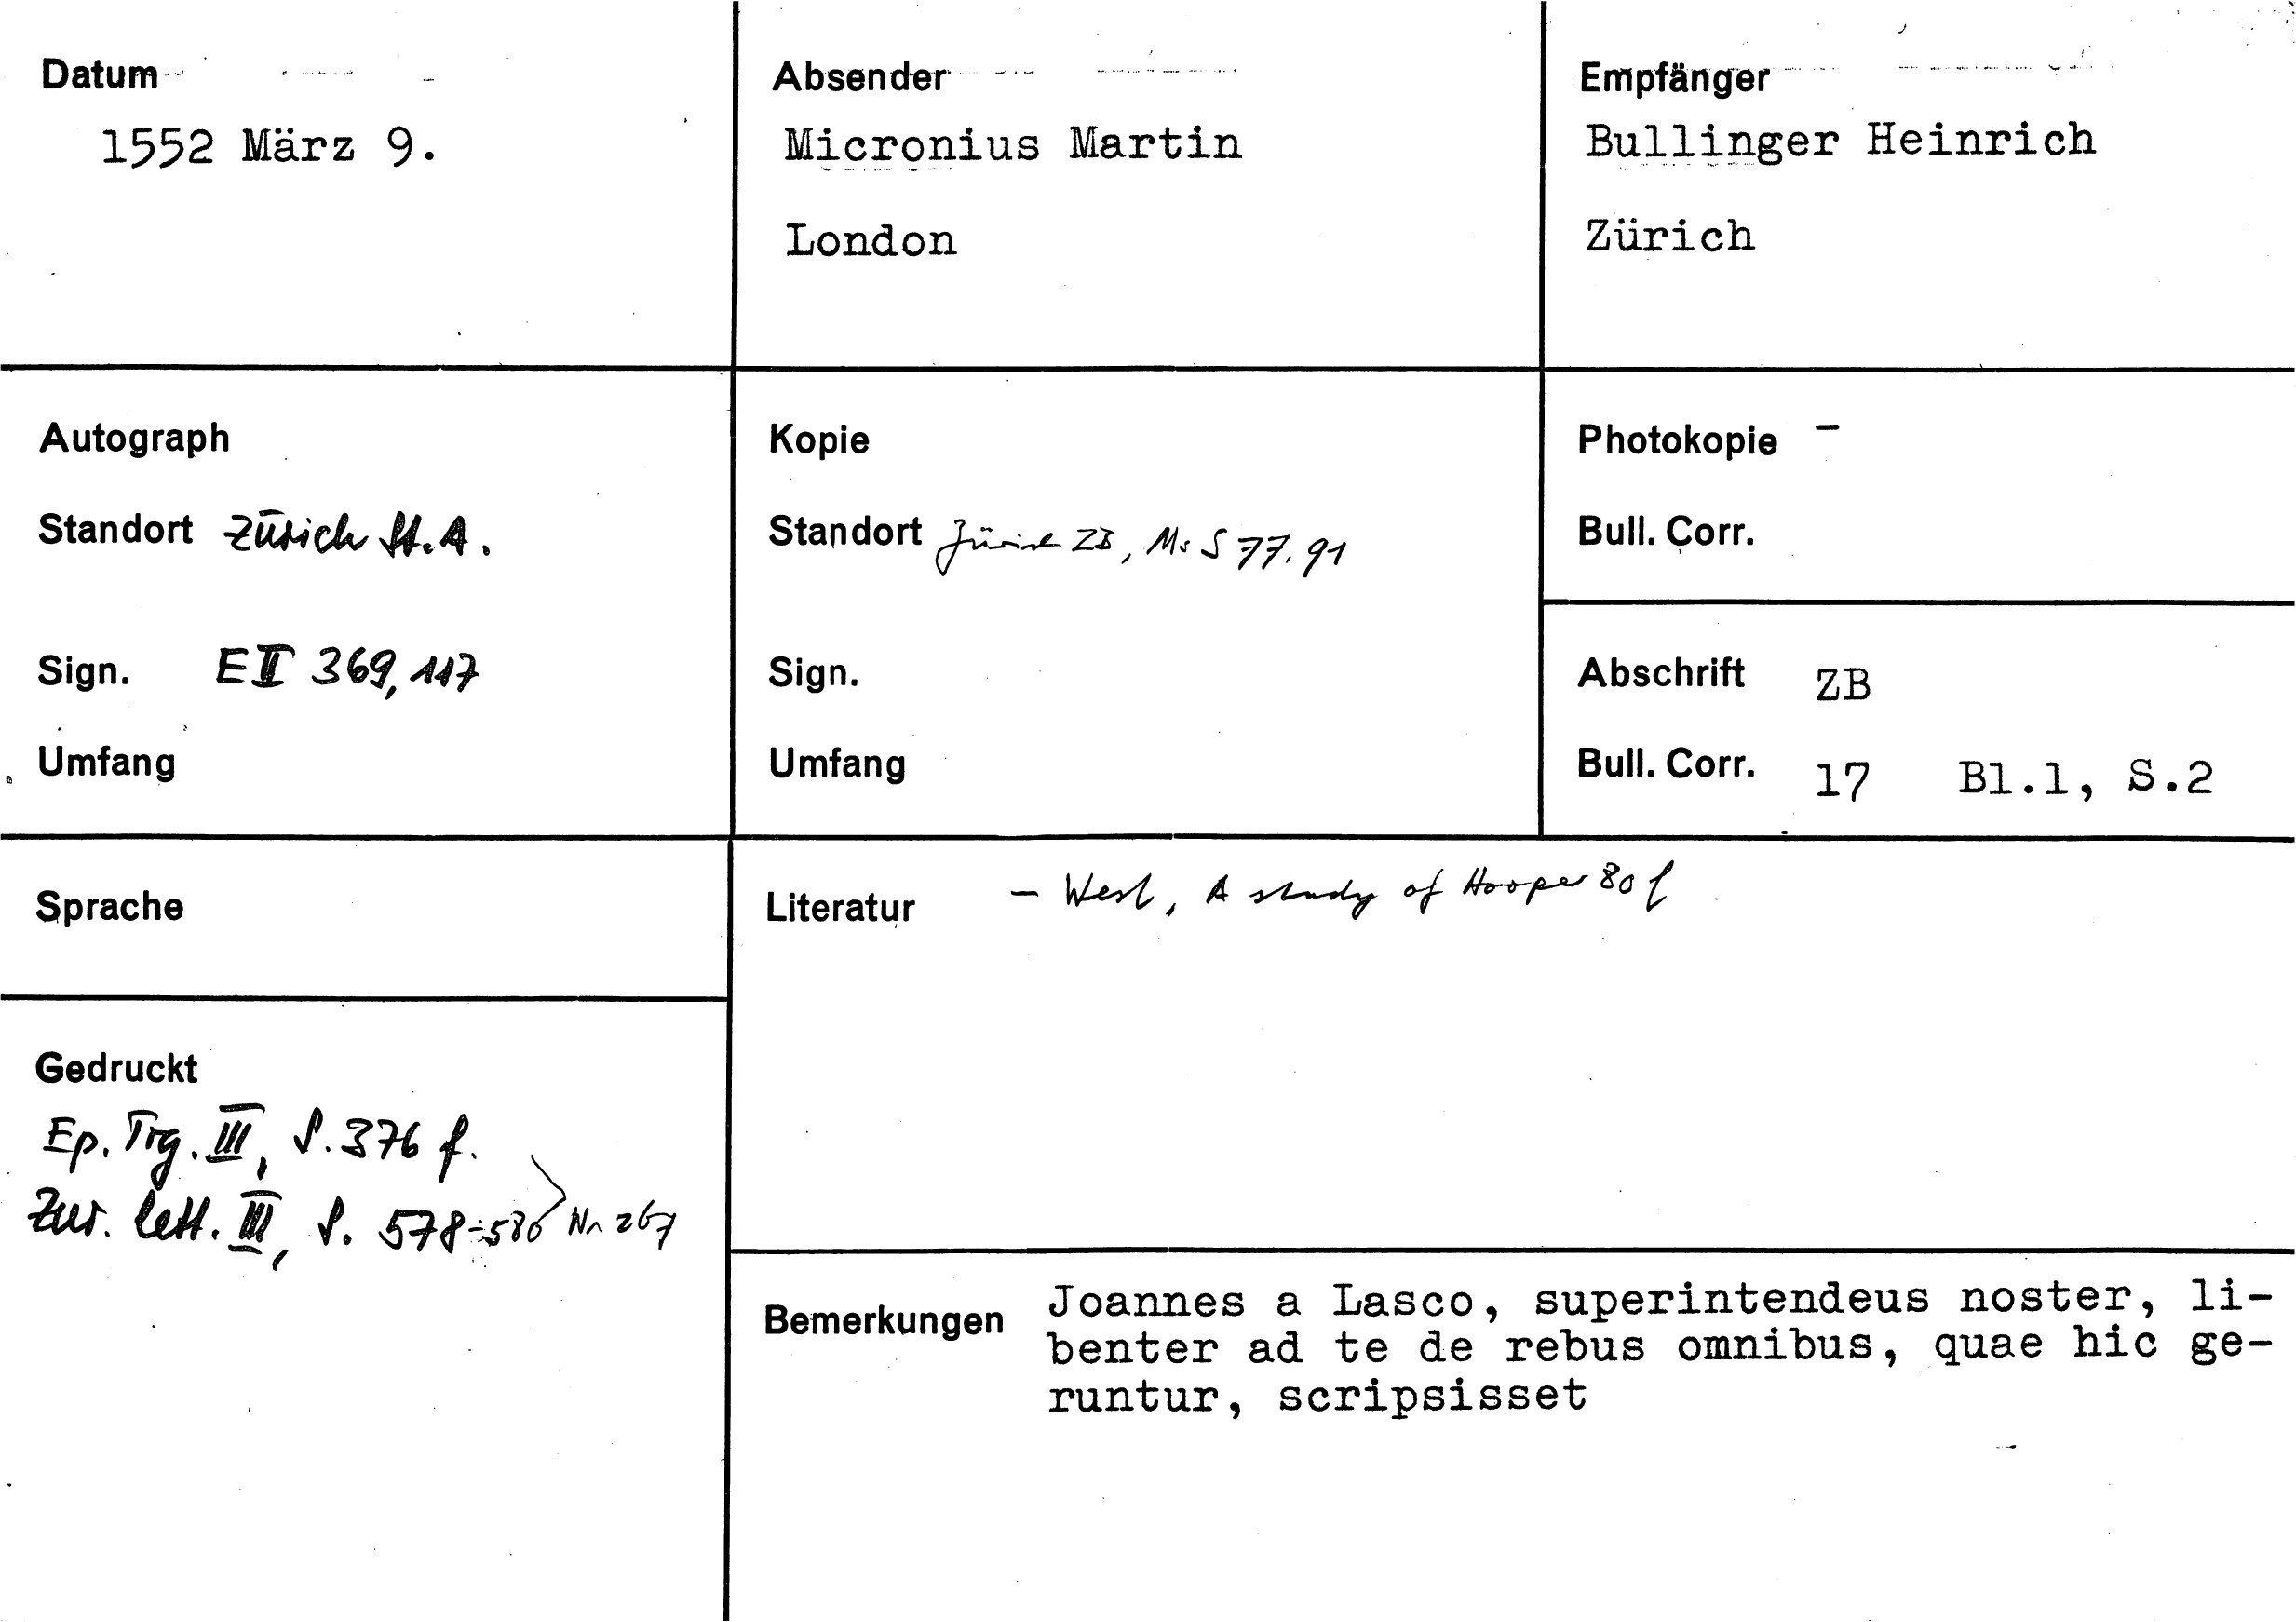 Datum
1552 März 9.
Absender
Micronius Martin
London
Empfänger
Bullinger Heinrich
Zürich
Autograph
Standort Zürich St.A.
Sign. E II 369, 117
Umfang
Kopie
Standort Zürich ZB, Ms S 77, 91
Sign.
Umfang
Photokopie -
Bull. Corr.
Abschrift ZB
Bull. Corr. 17 Bl.1, S.2
Sprache
Gedruckt
Ep. Tig. III, S. 376 f.
Zur. lett. III, S. 578-580 Nr 267
Literatur - West, A study of Hooper 80 f
Bemerkungen Joannes a Lasco, superintendeus noster, li-
benter ad te de rebus omnibus, quae hic ge-
runtur, scripsisset